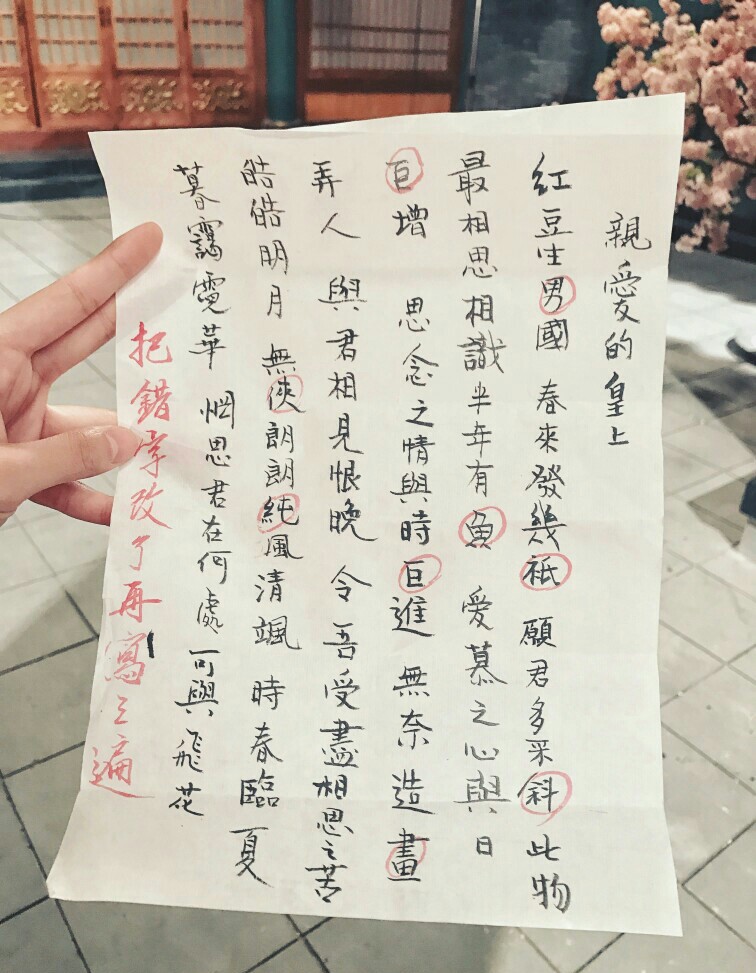 親愛的皇上
紅豆生男國 春來發幾祇 願君多采斜 此物
最相思相識半年有魚 愛慕之心與日
巨增 思念之情與時巨進 無奈造畫
弄人 與君相見恨晚 令吾受盡相思之苦
皓皓明月 無俠朗朗純風清颯 時春臨夏
暮靄霓華 惘思君在何處 可與飛花
把錯字改了再寫三遍